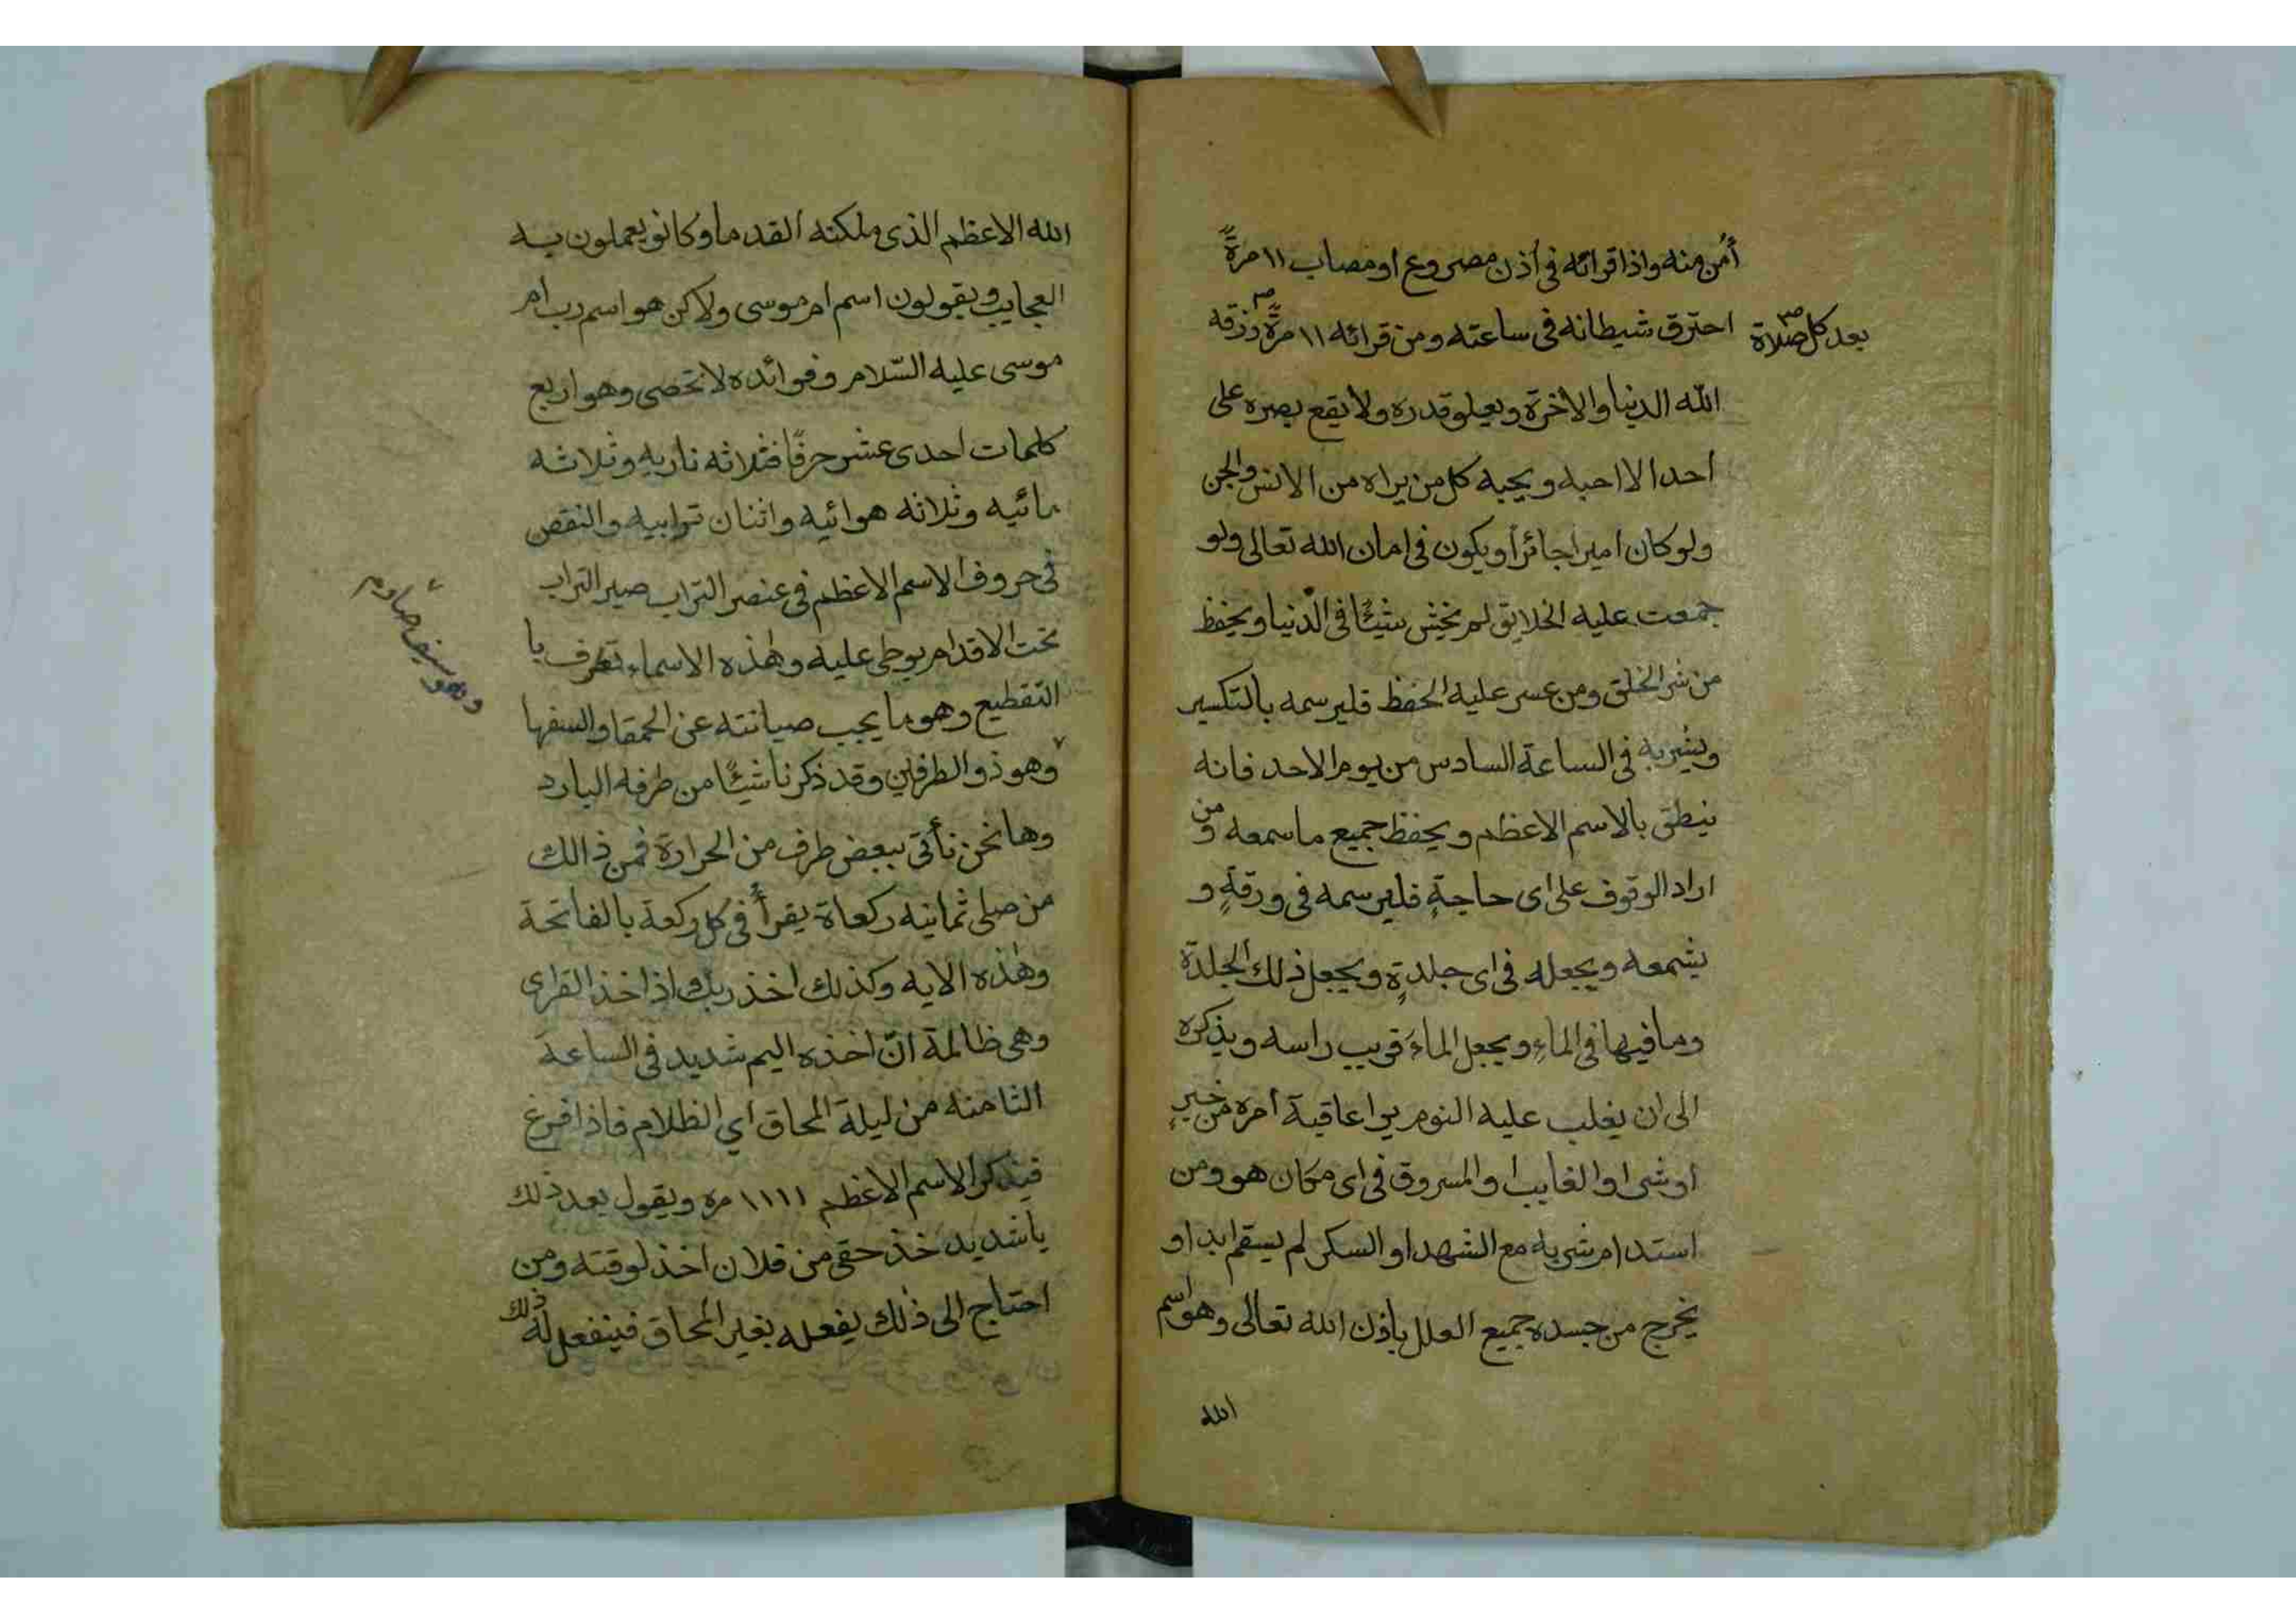 أمن منه واذا قرائه فى أذن مصروع او مصاب ١١ مرةً
احترق شيطانه فى ساعته ومن قرائه ١١ مرةً رزقه
بعد كل صلاة صح
الله الدنيا والاخرة ويعلو قدره ولا يقع بصره على
احد الا احبه ويحبه كل من يراه من الانس والجن
ولو كان اميرا جائراً ويكون فى امان الله تعالى ولو
جمعت عليه الخلايق لم يخش شيئًا فى الدنيا ويحفظ
من شر الخلق ومن عسر عليه الحفظ فليرسمه بالتكسير
ويشربه فى الساعة السادس من يوم الاحد فانه
ينطق بالاسم الاعظم ويحفظ جميع ما سمعه ومن
اراد الوقوف على اى حاجةٍ فليرسمه فى ورقةٍ و
يشمعه ويجعله فى اى جلدةٍ ويجعل ذلك الجلدة
وما فيها فى الماءِ ويجعل الماءَ قريب راسه ويذكره
الى ان يغلب عليه النوم يرا عاقبة امره من خيرٍ
او شى او الغايب او المسروق فى اى مكان هو ومن
استدام شربه مع الشهد او السكر لم يسقم ابد او
يخرج من جسده جميع العلل باذن الله تعالى وهو اسم
الله
الله الاعظم الذى ملكته القدما وكانو يعملون به
العجايب ويقولون اسم ام موسى ولاكن هو اسم رب ام
موسى عليه السّلام وفوائده لا تحصى وهو اربع
كلمات احدى عشر حرفًا فثلاثه ناريه وثلاثه
مائيه وثلاثه هوائيه واثنان ترابيه والنقص
فى حروف الاسم الاعظم فى عنصر التراب صير التراب
تحت الاقدام يوطى عليه وهٰذه الاسماء تعرف با
التقطيع وهو ما يجب صيانته عن الحمقا والسفها
وهو ذو الطرفين وقد ذكرنا شيئًا من طرفه البارد
وهو سيف صارم
وها نحن نأتى ببعض طرف من الحرارة فمن ذالك
من صلى ثمانيه ركعاة يقرأ فى كل ركعة بالفاتحة
وهٰذه الايه وكذلك اخذ ربك اذا اخذ القرى
وهى ظالمة انّ اخذه اليم شديد فى الساعة
الثامنه من ليلة المحاق اي الظلام فاذا افرغ
فيذكر الاسم الاعظم ١١١١ مره ويقول بعد ذلك
يا شديد خذ حقى من فلان اخذ لوقته ومن
احتاج الى ذلك يفعله بغير المحاق فينفعل له ذلك